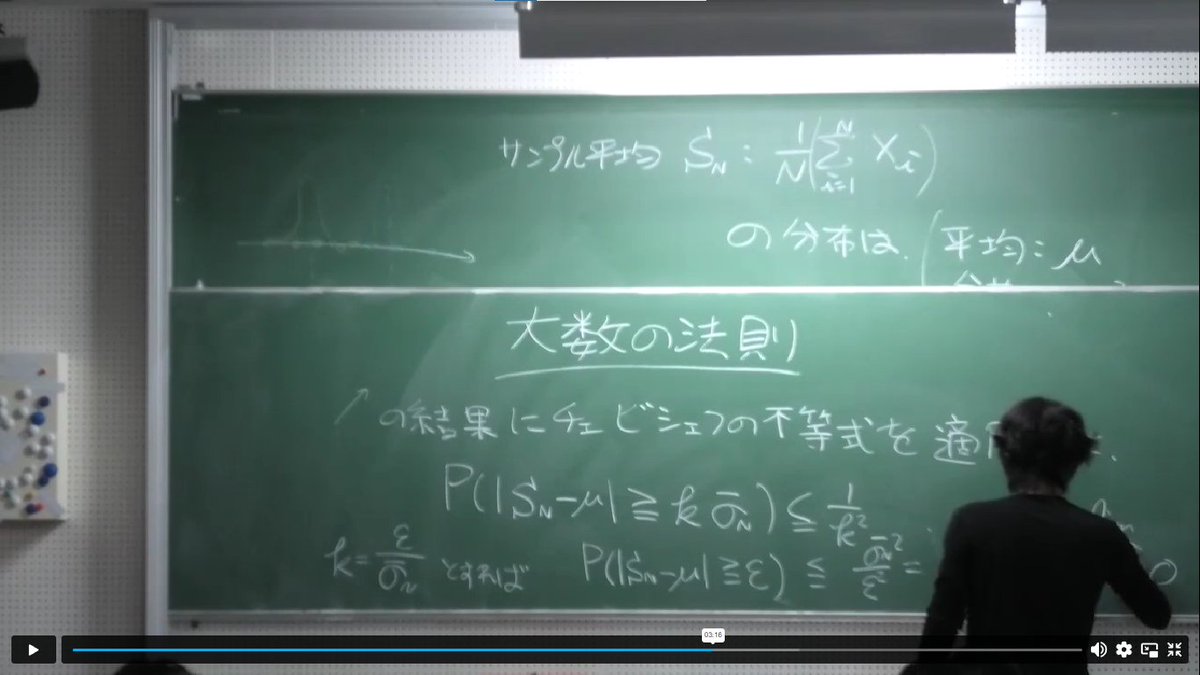 サンプル平均 S_N : 1/N (Σ_{i=1}^{N} X_i)
の分布は、( 平均 : μ
大数の法則
↗ の結果にチェビシェフの不等式を適
P(|S_N-μ| ≧ k σ_N) ≦ 1/k²
k = ε/σ_N とすれば P(|S_N-μ| ≧ ε) ≦ σ_N²/ε² =
03:16